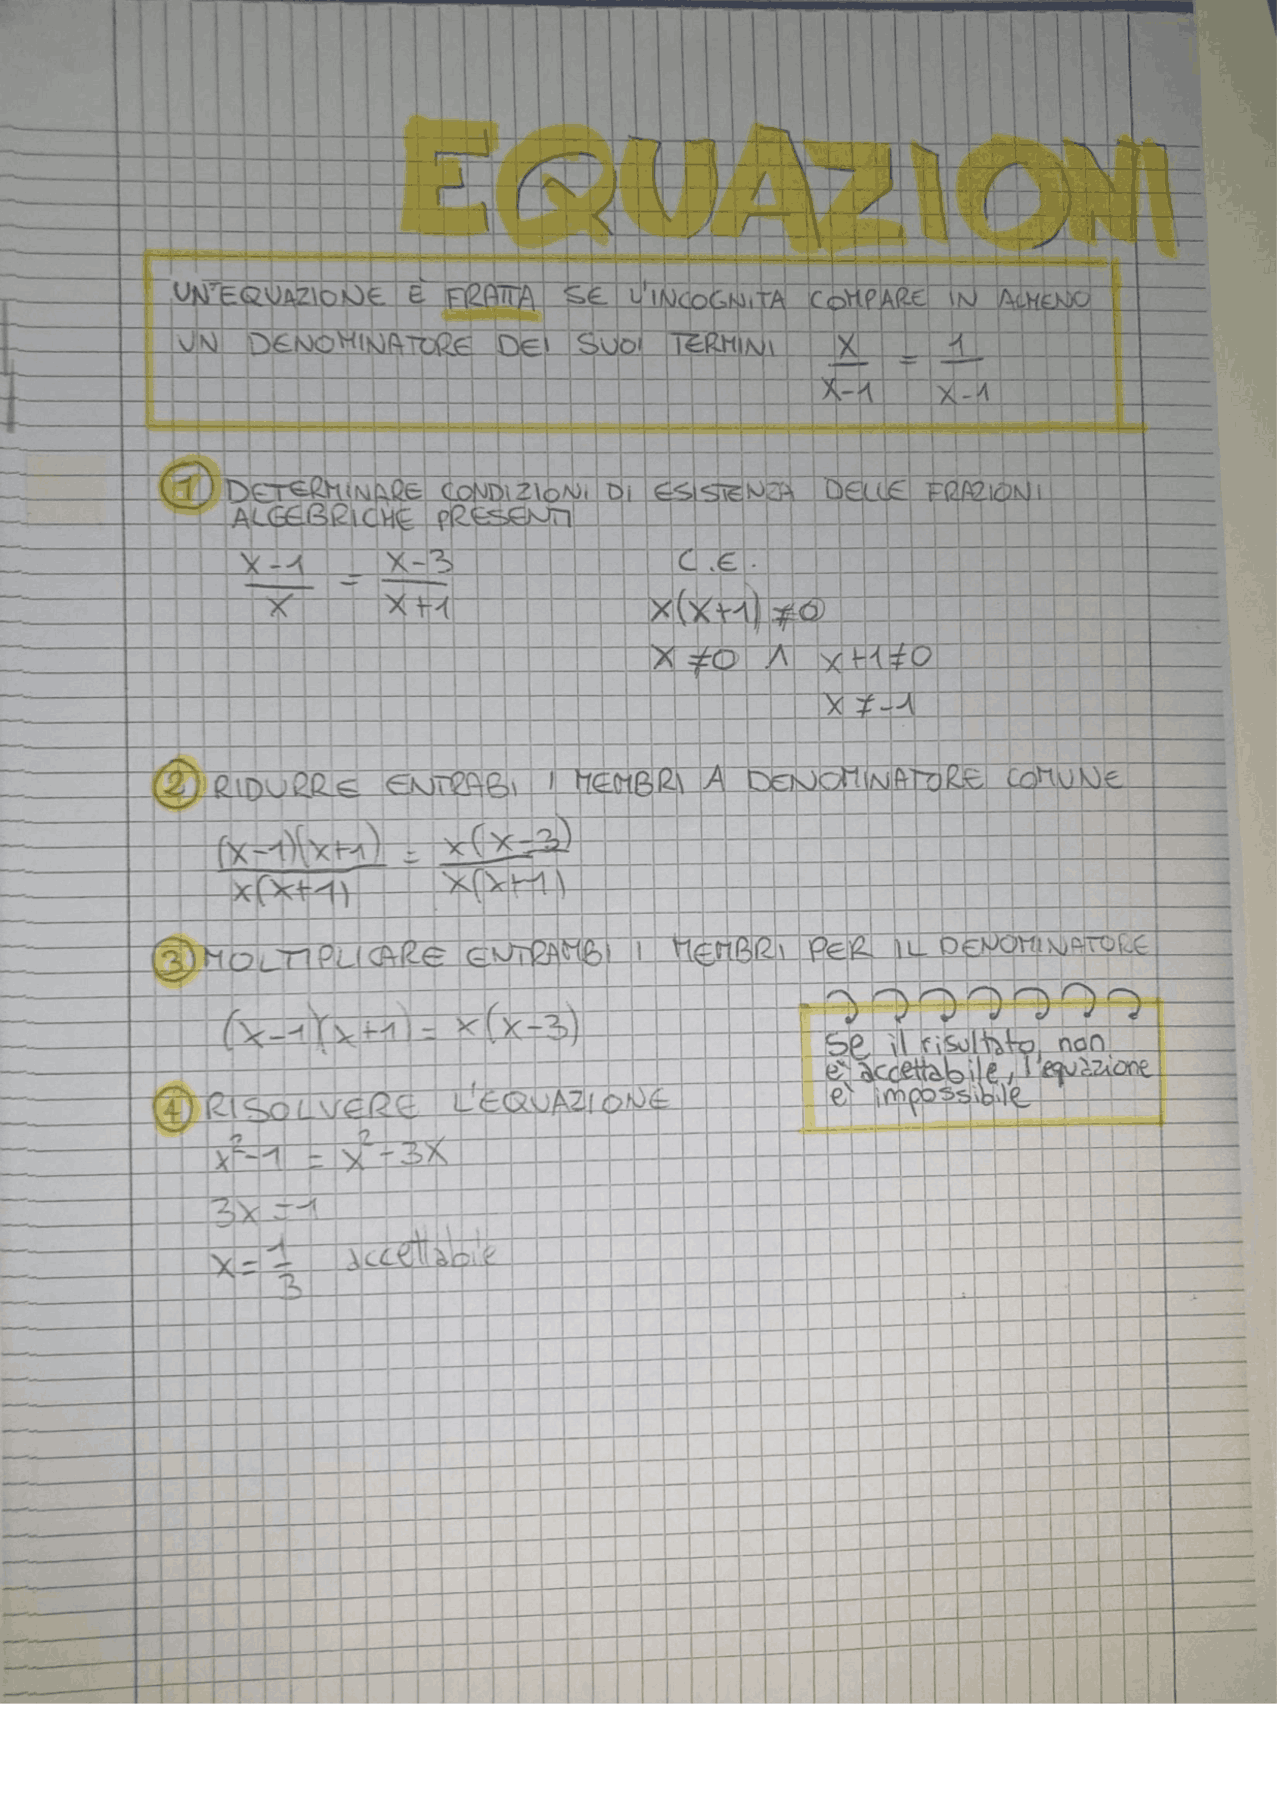 EQUAZIONI
UN'EQUAZIONE È FRATTA SE L'INCOGNITA COMPARE IN ALMENO
UN DENOMINATORE DEI SUOI TERMINI x/(x-1) = 1/(x-1)
① DETERMINARE CONDIZIONI DI ESISTENZA DELLE FRAZIONI
ALGEBRICHE PRESENTI
(x-1)/x = (x-3)/(x+1)
C.E.
x(x+1) ≠0
x ≠0 ∧ x+1≠0
x ≠-1
② RIDURRE ENTRABI I MEMBRI A DENOMINATORE COMUNE
(x-1)(x+1)/x(x+1) = x(x-3)/x(x+1)
③ MOLTIPLICARE ENTRAMBI I MEMBRI PER IL DENOMINATORE
(x-1)(x+1) = x(x-3)
se il risultato non
è accettabile, l'equazione
è impossibile
④ RISOLVERE L'EQUAZIONE
x²-1 = x²-3x
3x=1
x=1/3 accettabile